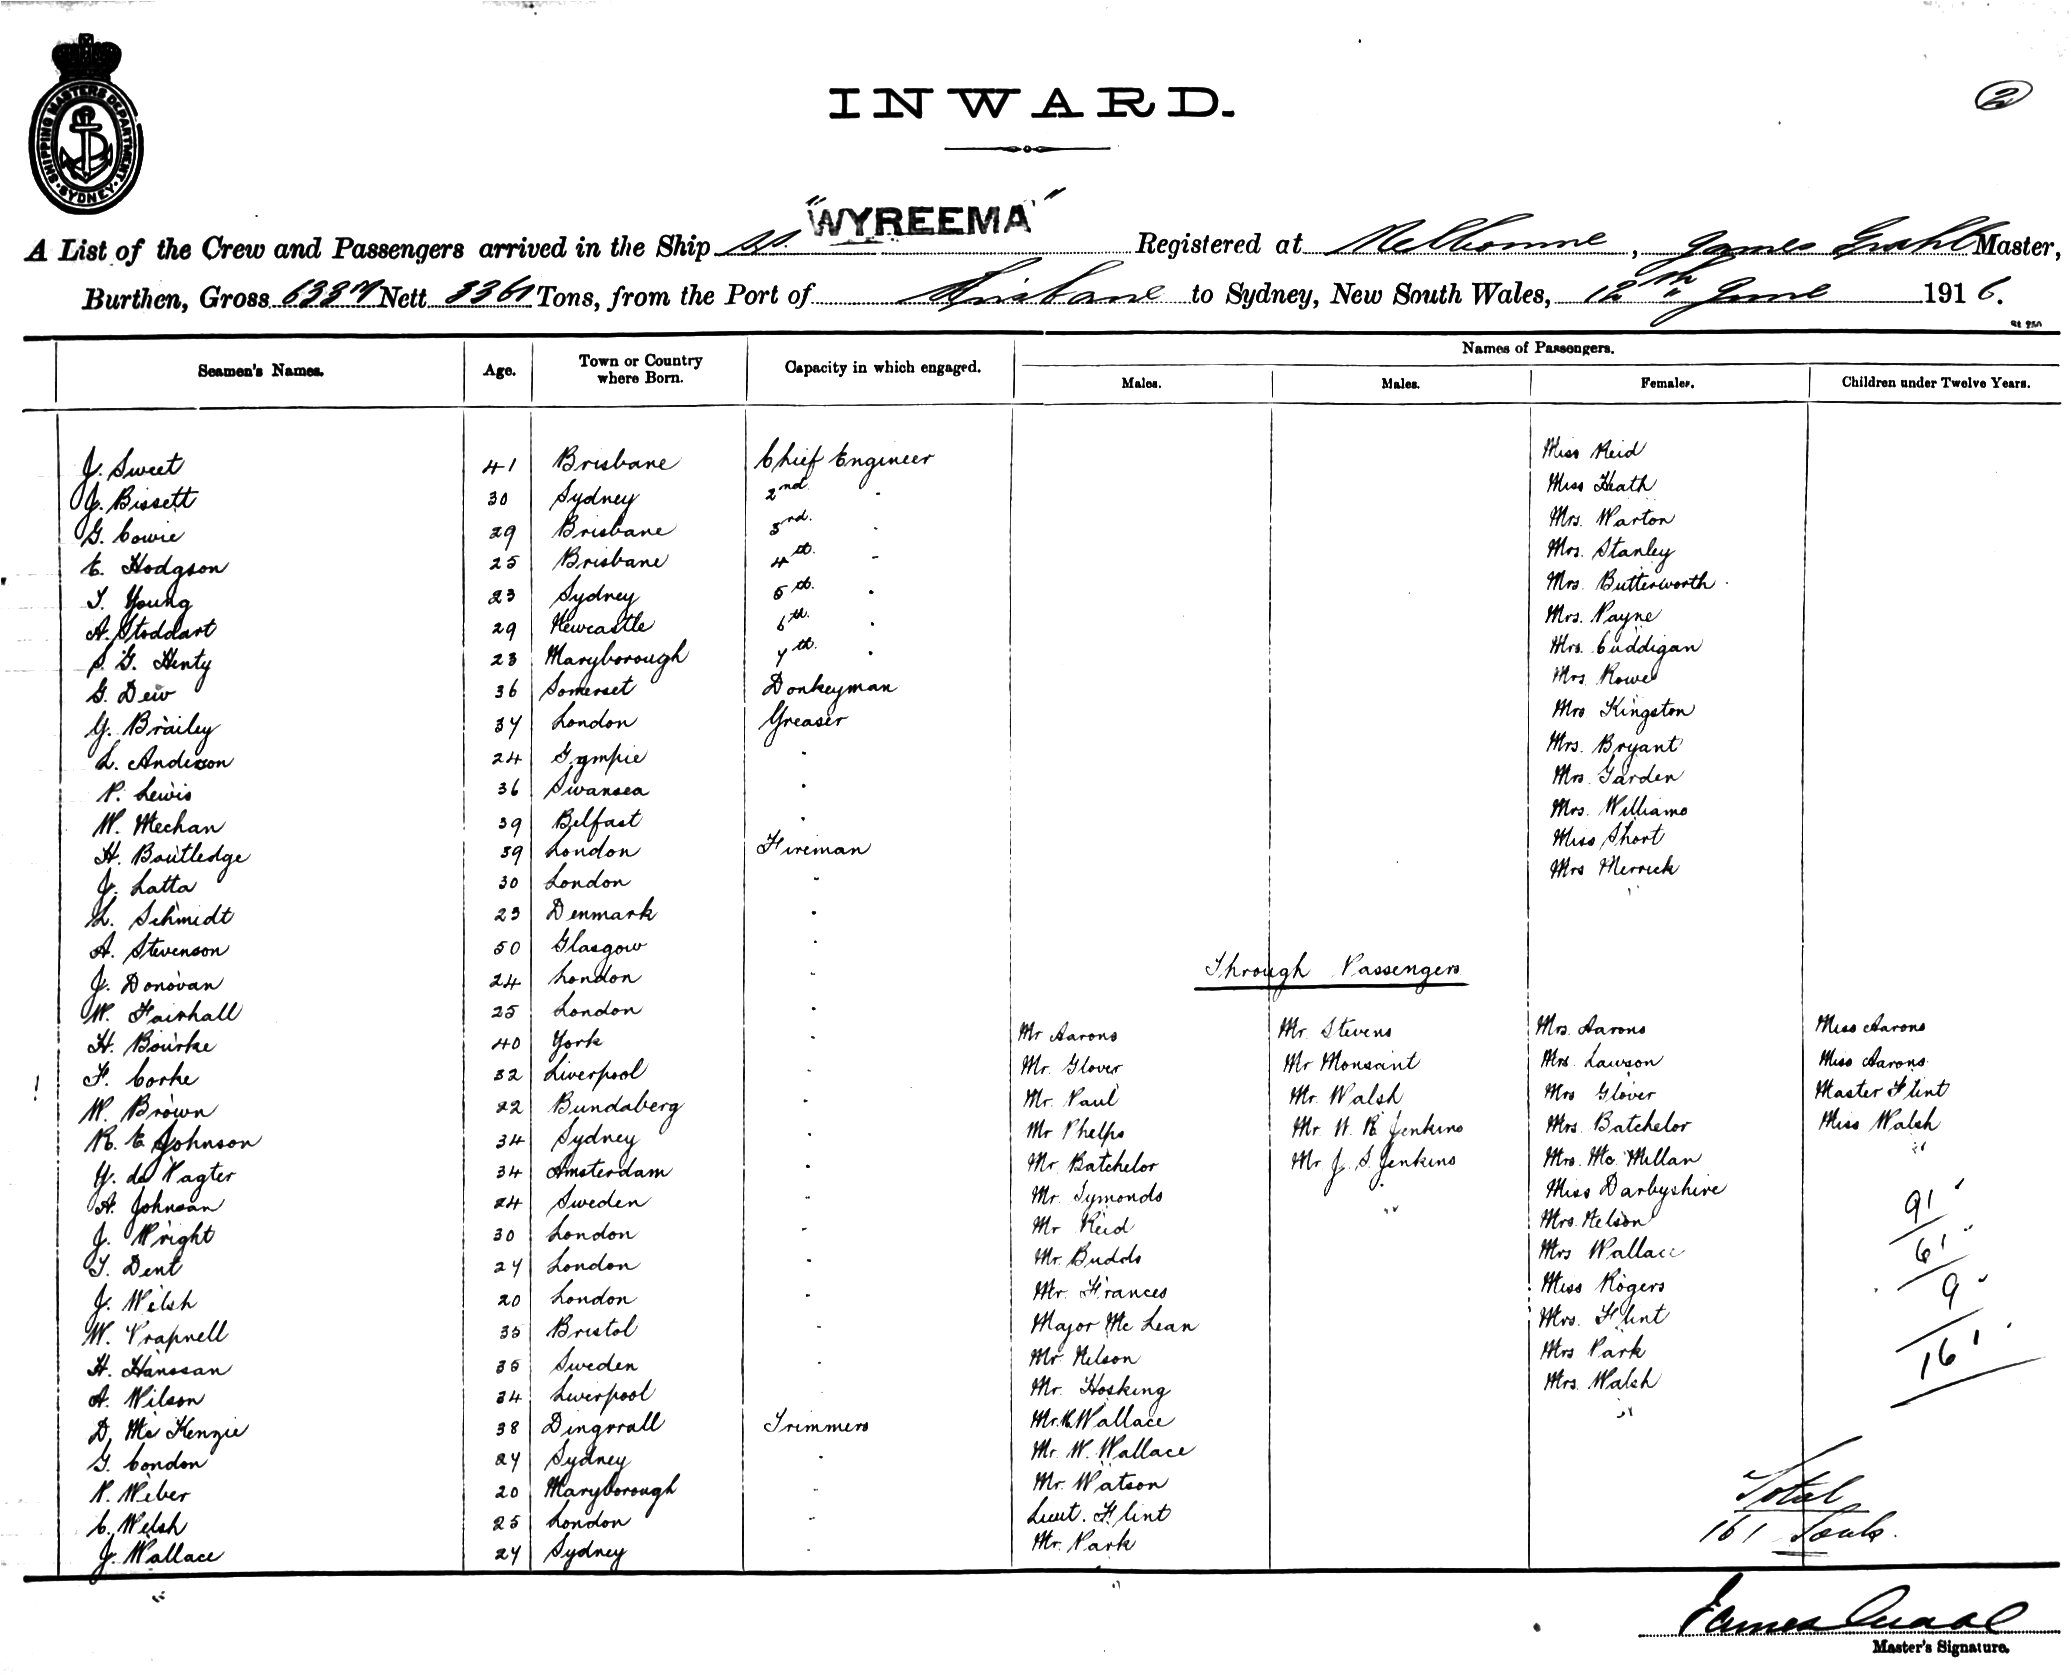 SHIPPING MASTERS DEPARTMENT
SYDNEY
INWARD.
2
"WYREEMA"
A List of the Crew and Passengers arrived in the Ship ss. Registered at Melbourne, James Master,
Burthen, Gross 6337 Nett 3361 Tons, from the Port of Brisbane to Sydney, New South Wales, 12th June 1916.
Names of Passengers.
Seamen's Names. Age. Town or Country where Born. Capacity in which engaged. Males. Males. Females. Children under Twelve Years.
J. Sweet 41 Brisbane Chief Engineer Miss Reid
J. Bissett 30 Sydney 2nd " Miss Heath
G. Cowie 29 Brisbane 3rd. " Mrs. Warton
E. Hodgson 25 Brisbane 4th. " Mrs. Stanley
T. Young 23 Sydney 5th. " Mrs. Butterworth
A. Stoddart 29 Newcastle 6th. " Mrs. Payne
S. G. Henty 23 Maryborough 7th. " Mrs. Cuddigan
G. Dew 36 Somerset Donkeyman Mrs. Rowe
G. Brailey 37 London Greaser Mrs Kingston
L. Anderson 24 Gympie " Mrs. Bryant
P. Lewis 36 Swansea " Mrs. Garden
W. Mechan 39 Belfast " Mrs. Williams
H. Boutledge 39 London Fireman Miss Short
J. Latta 30 London " Mrs Merrick
L. Schmidt 23 Denmark "
A. Stevenson 50 Glasgow "
Through Passengers
J. Donovan 24 London "
W. Fairhall 25 London "
H. Bourke 40 York " Mr Aarons Mr. Stevens Mrs. Aarons Miss Aarons
F. Corke 32 Liverpool " Mr. Glover Mr Monsant Mrs. Lawson Miss Aarons
W. Brown 22 Bundaberg " Mr. Paul Mr. Walsh Mrs Glover Master Flint
R. E Johnson 34 Sydney " Mr Phelps Mr. W. R. Jenkins Mrs. Batchelor Miss Walsh
Y. de Pagter 34 Amsterdam " Mr. Batchelor Mr J. S. Jenkins Mrs. Mc Millan
A. Johnson 24 Sweden " Mr. Symonds Miss Darbyshire 91
J. Wright 30 London " Mr Reid Mrs. Nelson 61
T. Dent 27 London " Mr. Budds Mrs Wallace 9
J. Welsh 20 London " Mr. Frances Miss Rogers
W. Trapnell 35 Bristol " Major Mc Lean Mrs. Flint 161
H. Hanssan 35 Sweden " Mr. Nelson Mrs Park
A. Wilson 34 Liverpool " Mr. Hosking Mrs. Walsh
D. McKenzie 38 Dingorall Trimmers Mr. R. Wallace
G. Condon 27 Sydney " Mr. W. Wallace
R. Weber 20 Maryborough " Mr. Watson
C. Welsh 25 London " Lieut. Flint
J. Wallace 27 Sydney " Mr. Park
Total
161 Souls.
James
Master's Signature.